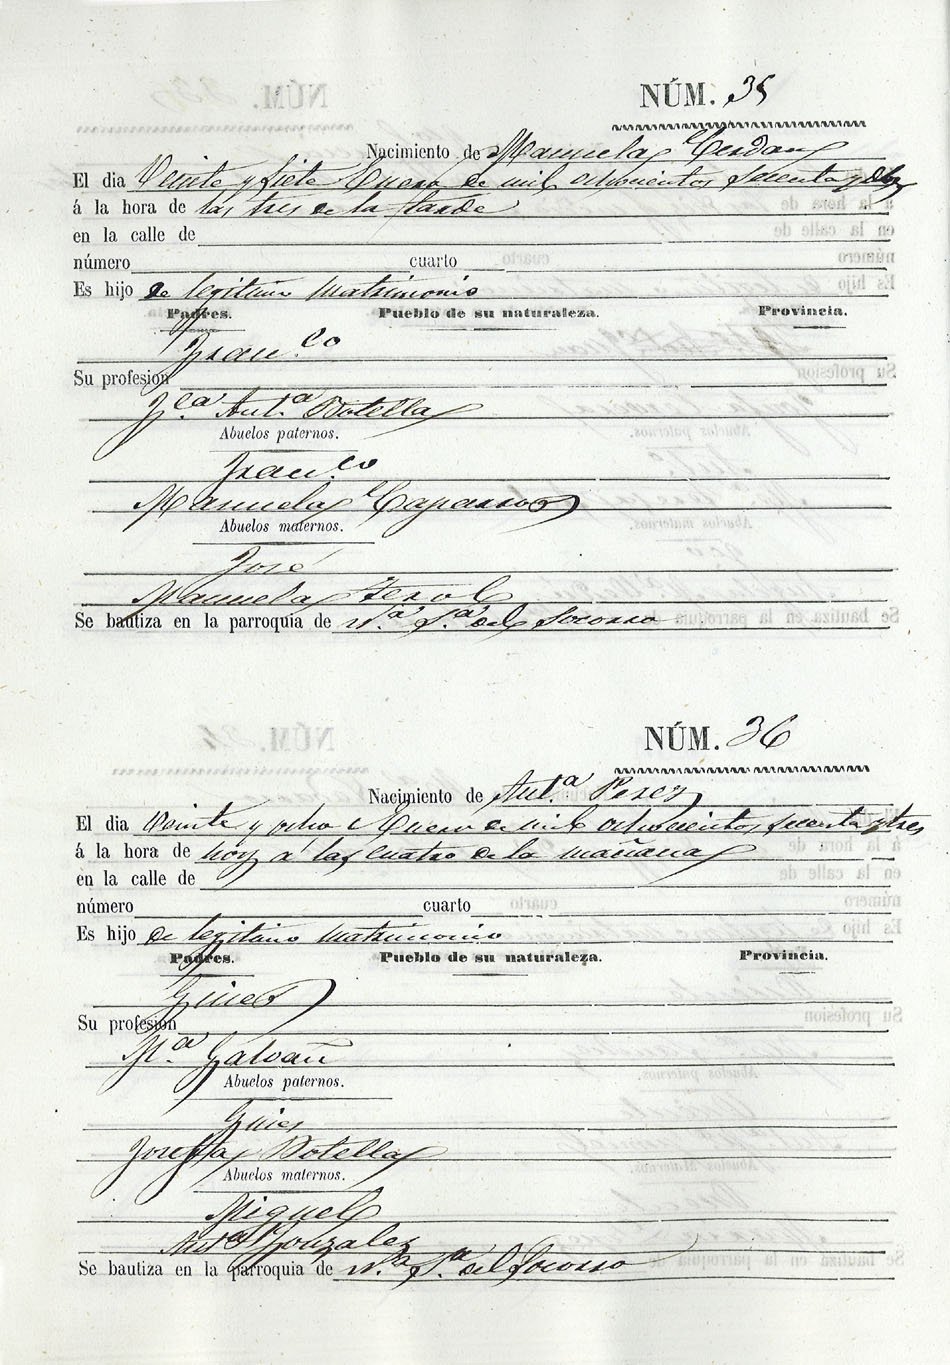 NÚM. 35
Nacimiento de Manuela Cerdan
El dia Veinte y siete Enero de mil ochocientos sesenta y
á la hora de las tres de la tarde
en la calle de
número cuarto
Es hijo de legitimo Matrimonio
Padres. Pueblo de su naturaleza. Provincia.
Fran.co
Su profesion
F.ca Ant.a Botella
Abuelos paternos.
Fran.co
Manuela Caparros
Abuelos maternos.
José
Manuela Ferol
Se bautiza en la parroquia de N.a S.a del Socorro
NÚM. 36
Nacimiento de Ant.a Perez
El dia Veinte y ocho Enero de mil ochocientos sesenta y tres
á la hora de hoy a las cuatro de la mañana
en la calle de
número cuarto
Es hijo de legitimo Matrimonio
Padres. Pueblo de su naturaleza. Provincia.
Gines
Su profesion
M.a Galvañ
Abuelos paternos.
Gines
Josefa Botella
Abuelos maternos.
Miguel
Ant.a Gonzalez
Se bautiza en la parroquia de N.a S.a del Socorro